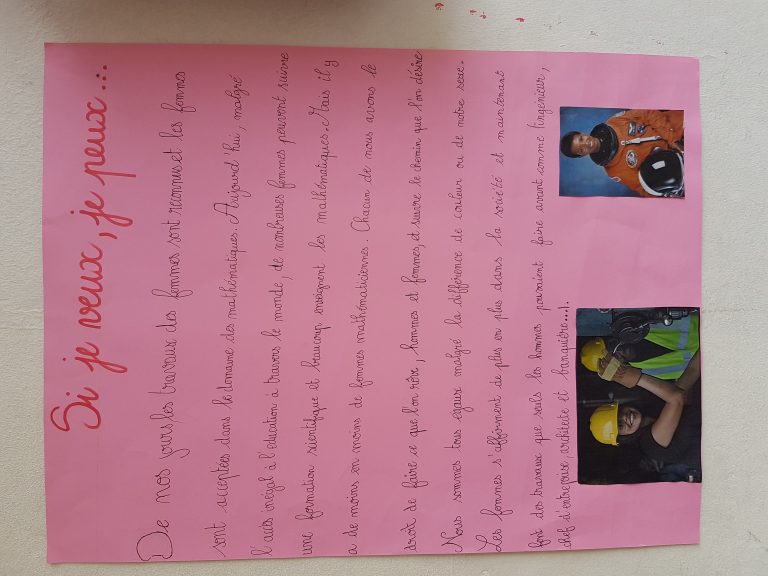 Si je veux, je peux...
De nos jours les travaux des femmes sont reconnus et les femmes
sont acceptées dans le domaine des mathématiques. Aujourd'hui, malgré
l'accès inégal à l'education à travers le monde, de nombreuses femmes peuvent suivre
une formation scientifique et beaucoup enseignent les mathématiques. Mais il y
a de moins en moins de femmes mathématiciennes. Chacun de nous avons le
droit de faire ce que l'on rêve, hommes et femmes, et suivre le chemin que l'on désire
Nous sommes tous égaux malgré la différence de couleur ou de notre sexe.
Les femmes s'affirment de plus en plus dans la société et maintenant
font des travaux que seuls les hommes pouvaient faire avant comme l'ingénieur,
chef d'entreprise, architecte et banquière...).